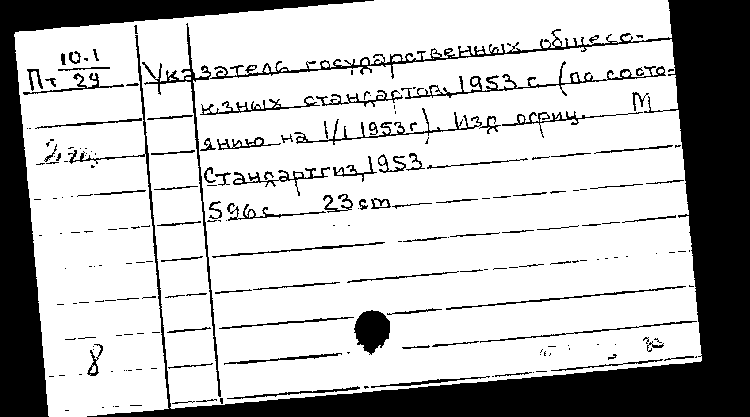 10.1
Пт 29
Указатель государственных общесо-
юзных стандартов, 1953 г. (по состо-
янию на 1/I 1953 г). Изд. офиц. М
Стандартгиз, 1953.
596 с. 23 cm.
2 эк.
8